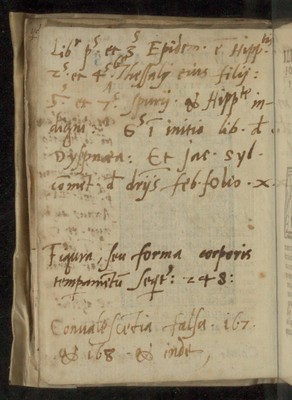 Lib.r p.s et 3.s Epidem. e Hipp.tis
2.s et 4.s 6.s Thessaly eius filij:
5.s et 7.s spurij & Hipp.te in-
digni: 6.s I initio lib. d
Dyspnœa: Et Jac. Syl.
com̄et. d drijs feb. folio. x
Figura, seu forma corporis
temperamētū seqt.r: 248:
Convalescētia falsa. 167.
& 168 & inde,